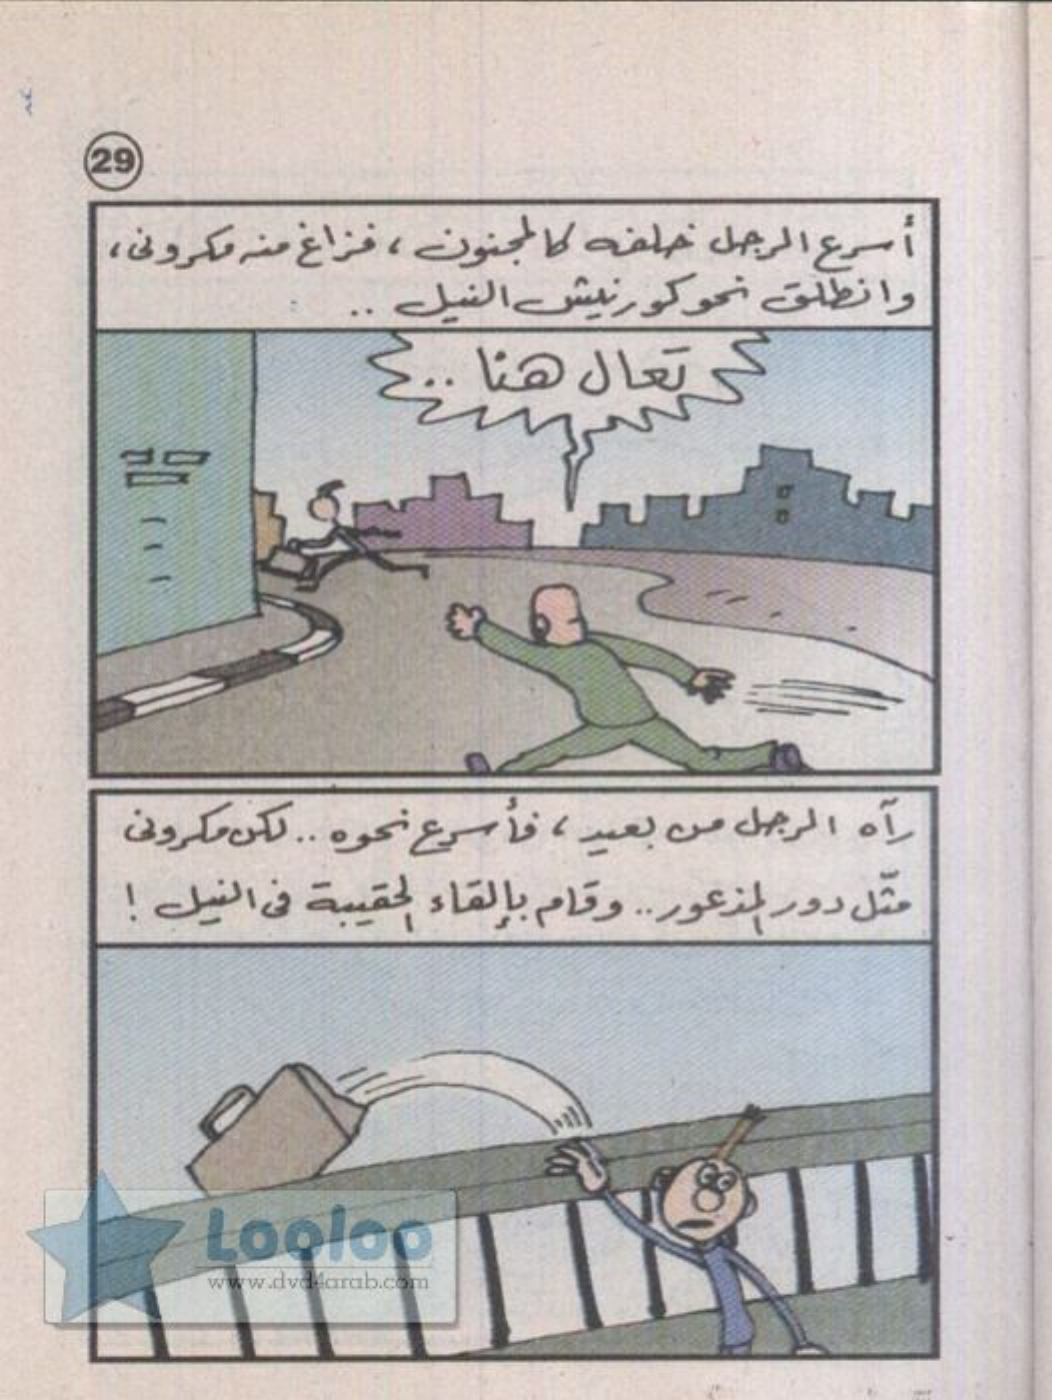 29
أسرع الرجل خلفه كالمجنون ، فزاغ منه مكرونى ،
وانطلق نحو كورنيش النيل ..
تعال هنا ..
رآه الرجل من بعيد ، فأسرع نحوه .. لكن مكرونى
مثّل دور المذعور .. وقام بإلقاء الحقيبة فى النيل !
Looloo
www.dvd4arab.com